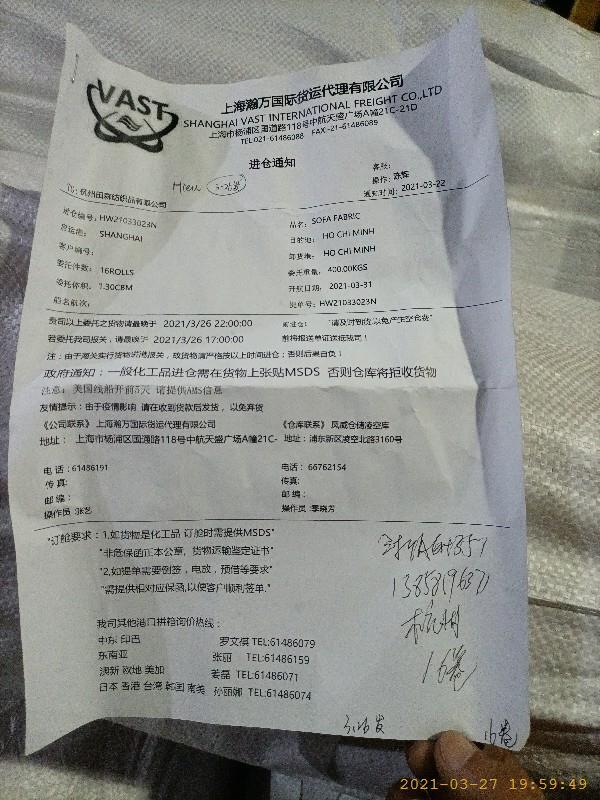 VAST
上海瀚万国际货运代理有限公司
SHANGHAI VAST INTERNATIONAL FREIGHT CO.,LTD
上海市杨浦区国通路118号中航天盛广场A幢21C-21D
TEL:021-61486088 FAX:-21-61486089
进仓通知
客服:
操作: 陈辉
通知时间: 2021-03-22
Mien 3-26发
TO: 杭州田森纺织品有限公司
进仓编号: HW21033023N
品名: SOFA FABRIC
启运港: SHANGHAI
目的地: HO CHI MINH
客户编号:
卸货港: HO CHI MINH
委托件数: 16ROLLS
委托重量: 400.00KGS
委托体积: 1.30CBM
开航日期: 2021-03-31
船名航次:
提单号: HW21033023N
贵司以上委托之货物请最晚于 2021/3/26 22:00:00 前进仓: "请及时到货以免产生空仓费"
若委托我司报关,请最晚于 2021/3/26 17:00:00 前将报送单证送抵我司!
注: 由于海关实行货物运抵报关,故货物请严格按以上时间进仓;否则后果自负!
政府通知:一般化工品进仓需在货物上张贴MSDS 否则仓库将拒收货物
注意: 美国线船开前5天 请提供AMS信息
友情提示: 由于疫情影响 请在收到货款后发货,以免弃货
《公司联系》上海瀚万国际货运代理有限公司 《仓库联系》凤威仓储凌空库
地址: 上海市杨浦区国通路118号中航天盛广场A幢21C- 地址: 浦东新区凌空北路3160号
电话: 61486191 电话: 66762154
传真: 传真:
邮编: 邮编:
操作员: 张艺 操作员: 季晓芳
"订舱要求: 1,如货物是化工品 订舱时需提供MSDS"
"非危保函正本公章, 货物运输鉴定证书"
"2,如提单需要倒签,电放,预借等要求"
"需提供相对应保函,以便客户顺利签单."
杭州
16卷
我司其他港口拼箱询价热线:
中东 印巴 罗文祺 TEL:61486079
东南亚 张丽 TEL:61486159
澳新 欧地 美加 姜磊 TEL:61486071
日本 香港 台湾 韩国 南美 孙丽娜 TEL:61486074
3.26发 16卷
2021-03-27 19:59:49